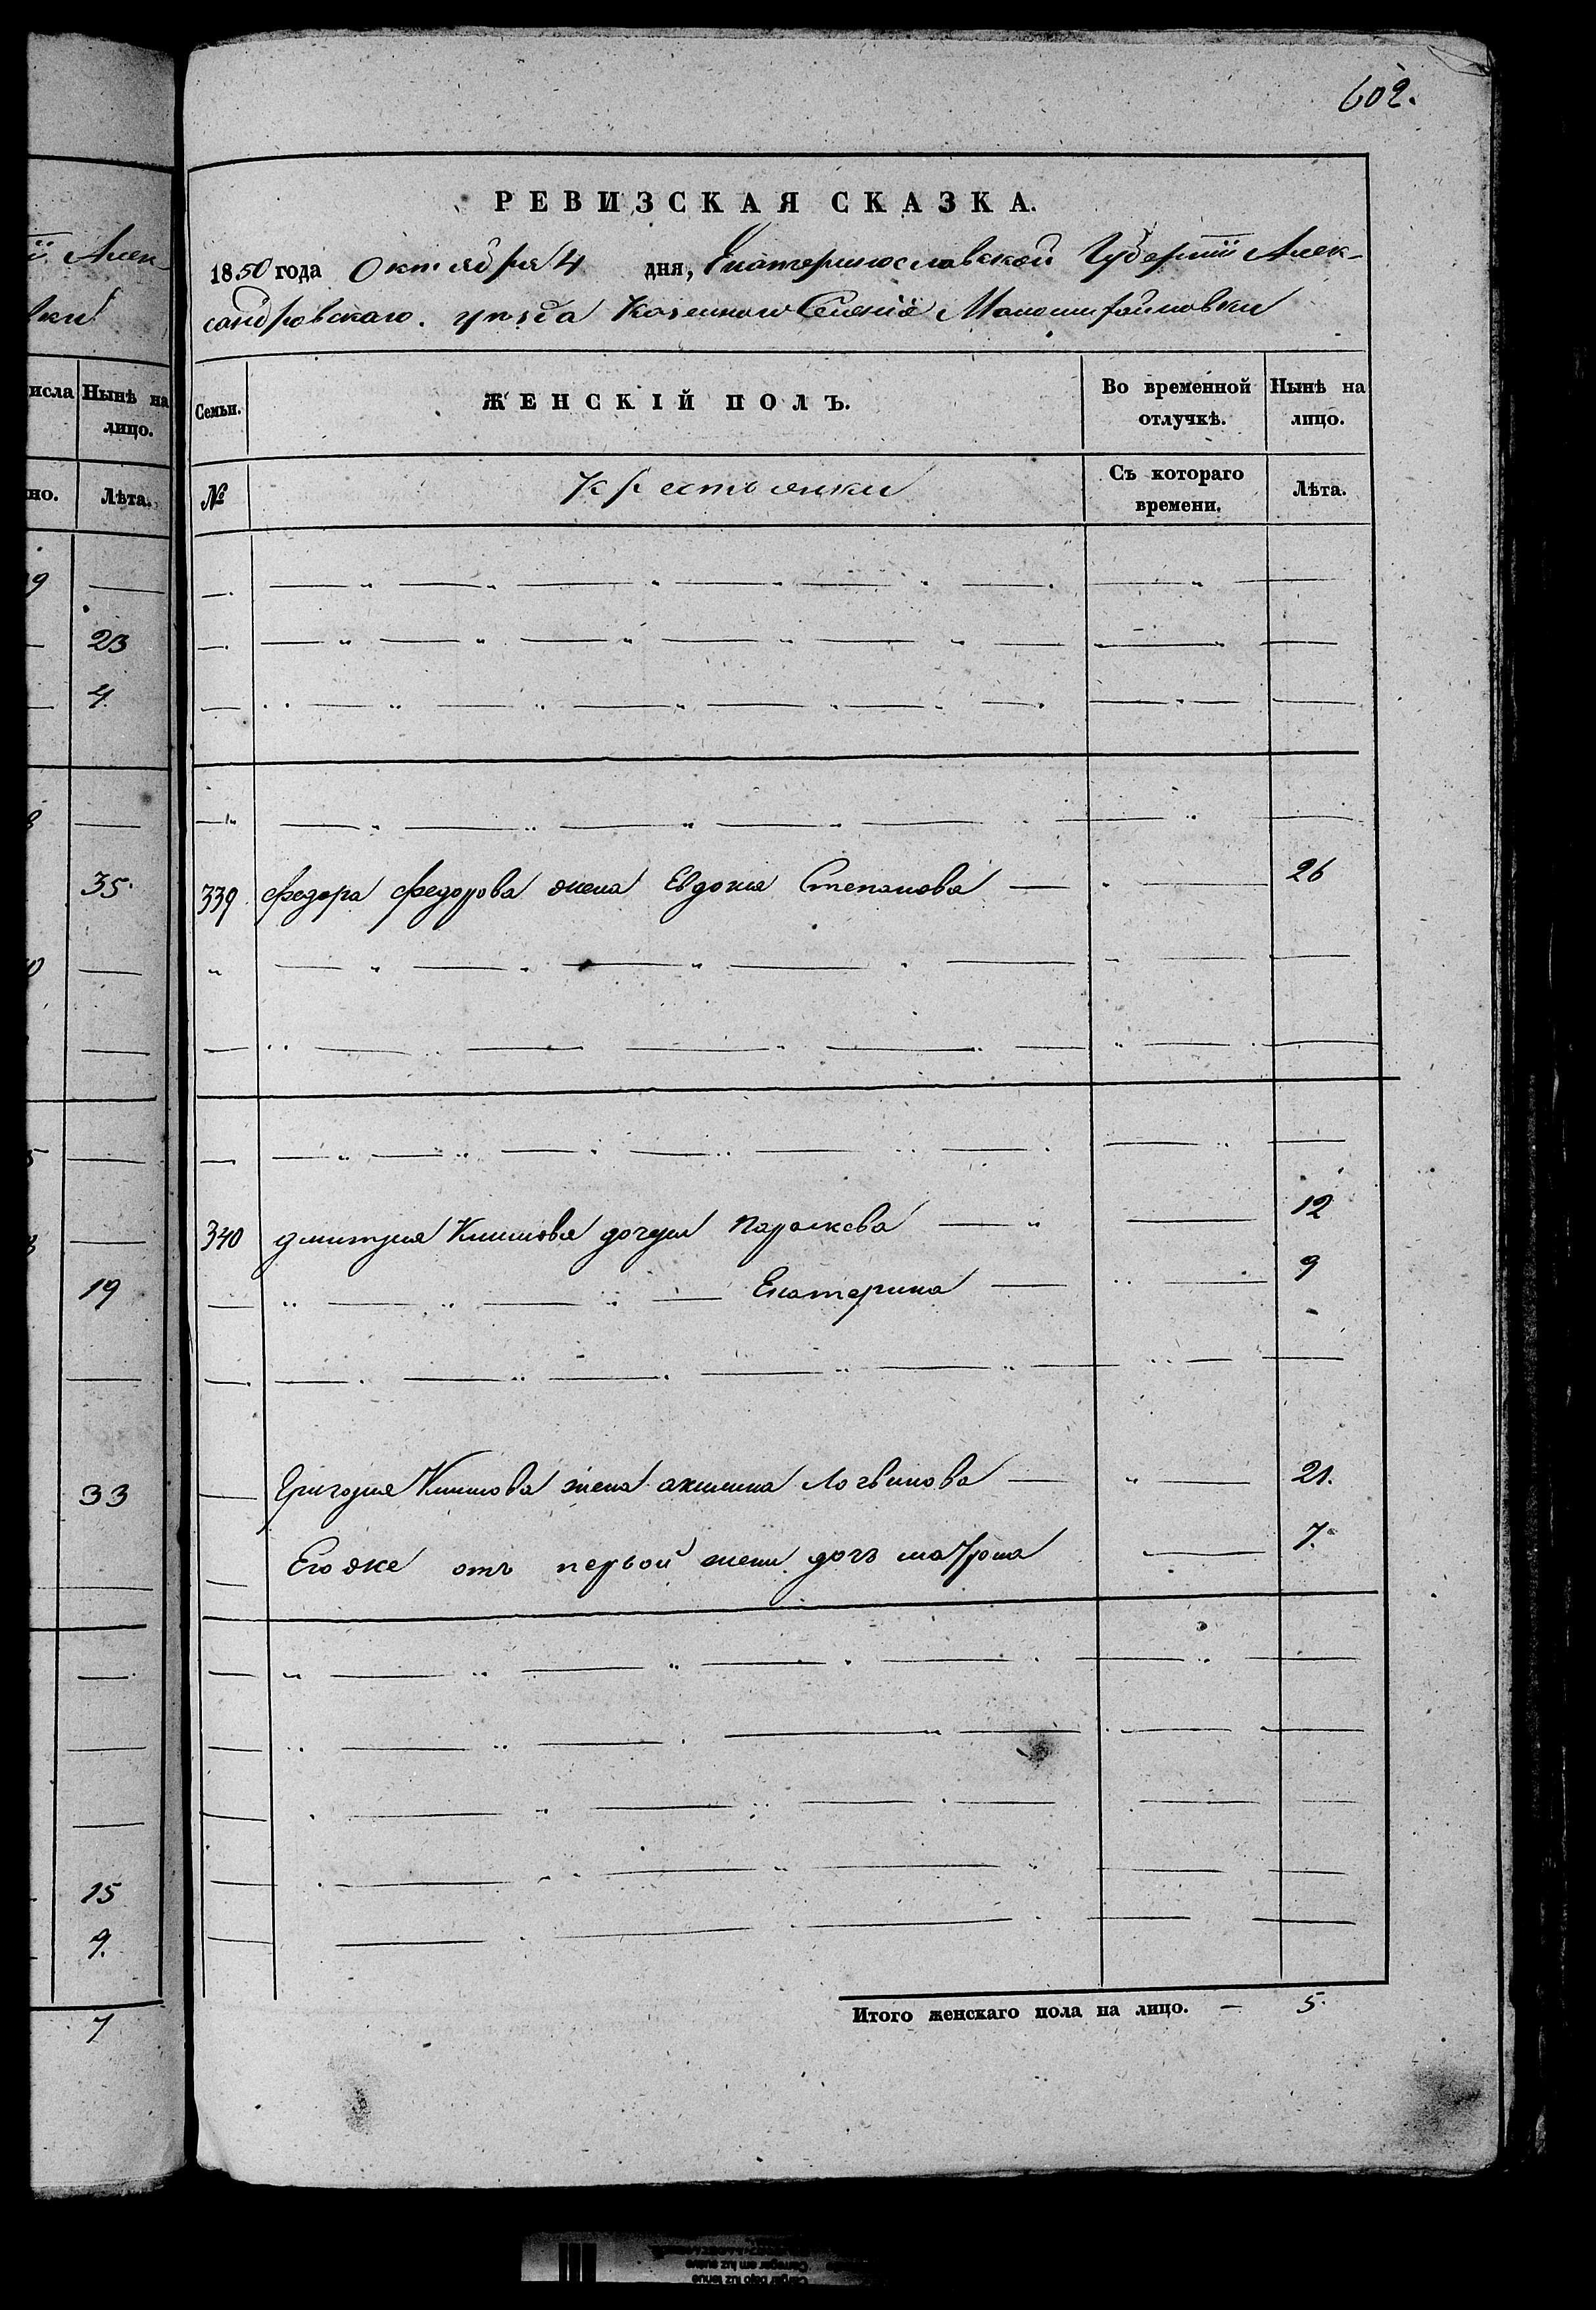 602.
РЕВИЗСКАЯ СКАЗКА.
1850 года Октября 4 дня, Екатеринославской Губернiи Алек-
сандровскаго уезда Казеннаго Селенiя
Семьи. ЖЕНСКIЙ ПОЛЪ. Во временной отлучкѣ. Нынѣ на лицо.
№ Крестьянки Съ котораго времени. Лѣта.
339 Федора Федорова жена Евдокия Степанова 26
340 Дмитрия Климова дочери Параскева 12
Екатерина 9
Григория Климова жена акилина Логвинова 21.
Его же отъ первой жени дочь матрона 7.
Итого женскаго пола на лицо. — 5.
ii Алек-
вки
исла Нынѣ на лицо.
но. Лѣта.
9
23
4.
8
35.
0
5
19
33
15
9.
7